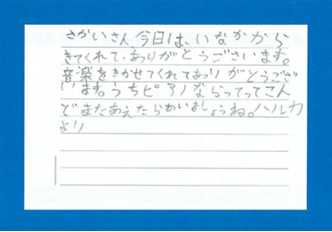 さかいさん、今日は、いなかから
きてくれて、ありがとうございます。
音楽をきかせてくれてありがとうござ
います。うちピアノならってってこん
どまたあえたらあいましょうね。ハルカ
より